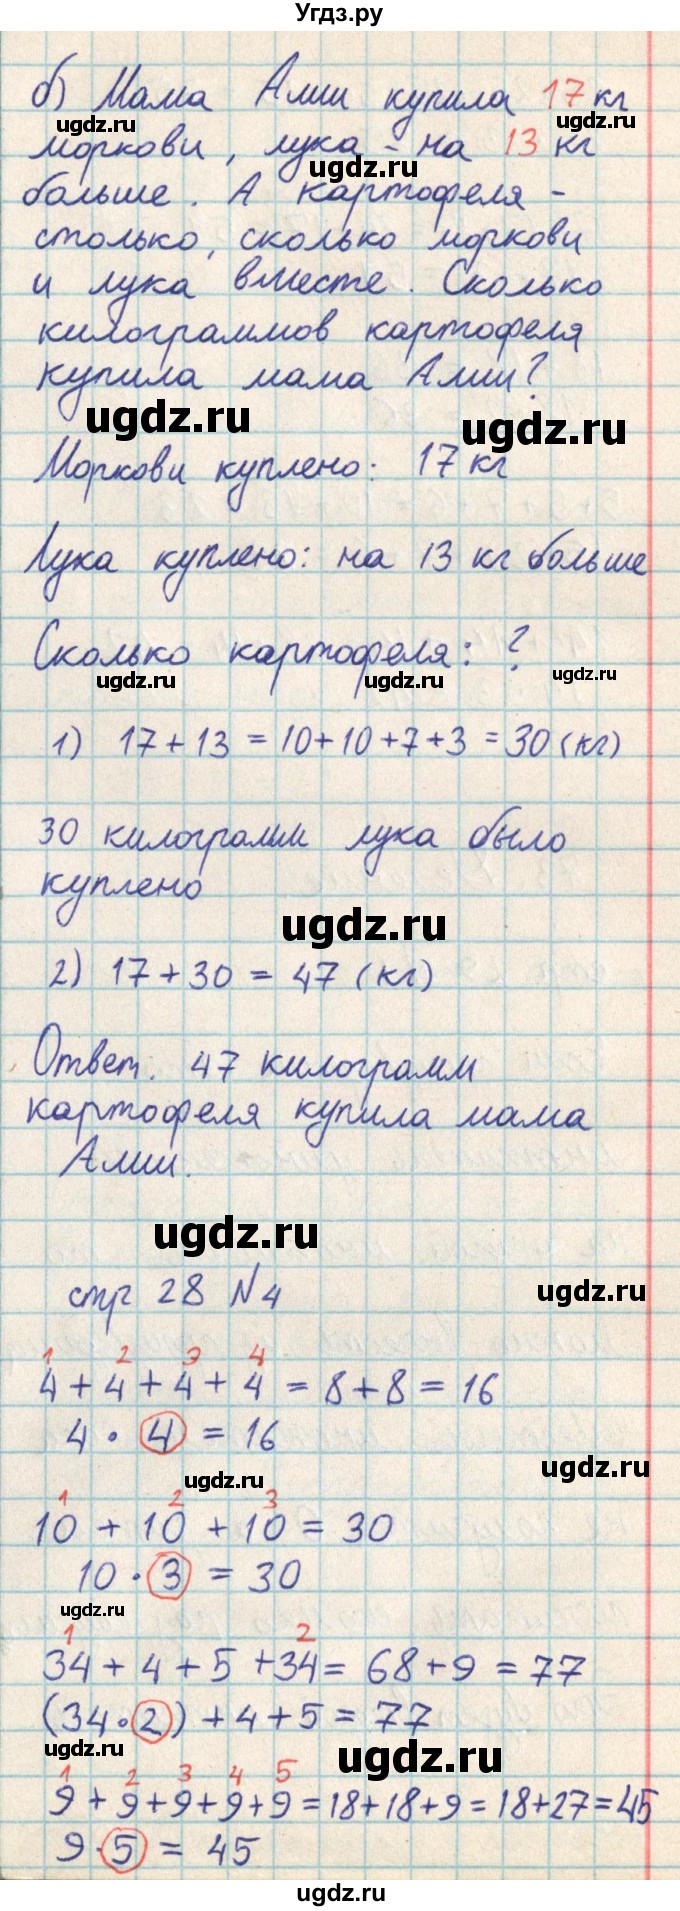 Угдз.ру
б) Мама Алии купила 17 кг
ugdz.ru ugdz.ru
моркови, лука - на 13 кг
ugdz.ru
больше. А картофеля -
столько, сколько моркови
и лука вместе. Сколько
килограммов картофеля
купила мама Алии?
ugdz.ru ugdz.ru
Моркови куплено: 17 кг
Лука куплено: на 13 кг больше
Сколько картофеля: ?
ugdz.ru ugdz.ru ugdz.ru
1) 17 + 13 = 10+10+7+3 = 30 (кг)
30 килограмм лука было
куплено
ugdz.ru
2) 17 + 30 = 47 (кг)
Ответ: 47 килограмм
картофеля купила мама
Алии.
ugdz.ru
стр 28 №4
ugdz.ru
1 2 3 4
4 + 4 + 4 + 4 = 8 + 8 = 16
4 · 4 = 16
ugdz.ru ugdz.ru
1 2 3
10 + 10 + 10 = 30
10 · 3 = 30
ugdz.ru
1 2
34 + 4 + 5 + 34 = 68 + 9 = 77
(34 · 2) + 4 + 5 = 77
ugdz.ru ugdz.ru
1 2 3 4 5
9 + 9 + 9 + 9 + 9 = 18 + 18 + 9 = 18 + 27 = 45
9 · 5 = 45
ugdz.ru